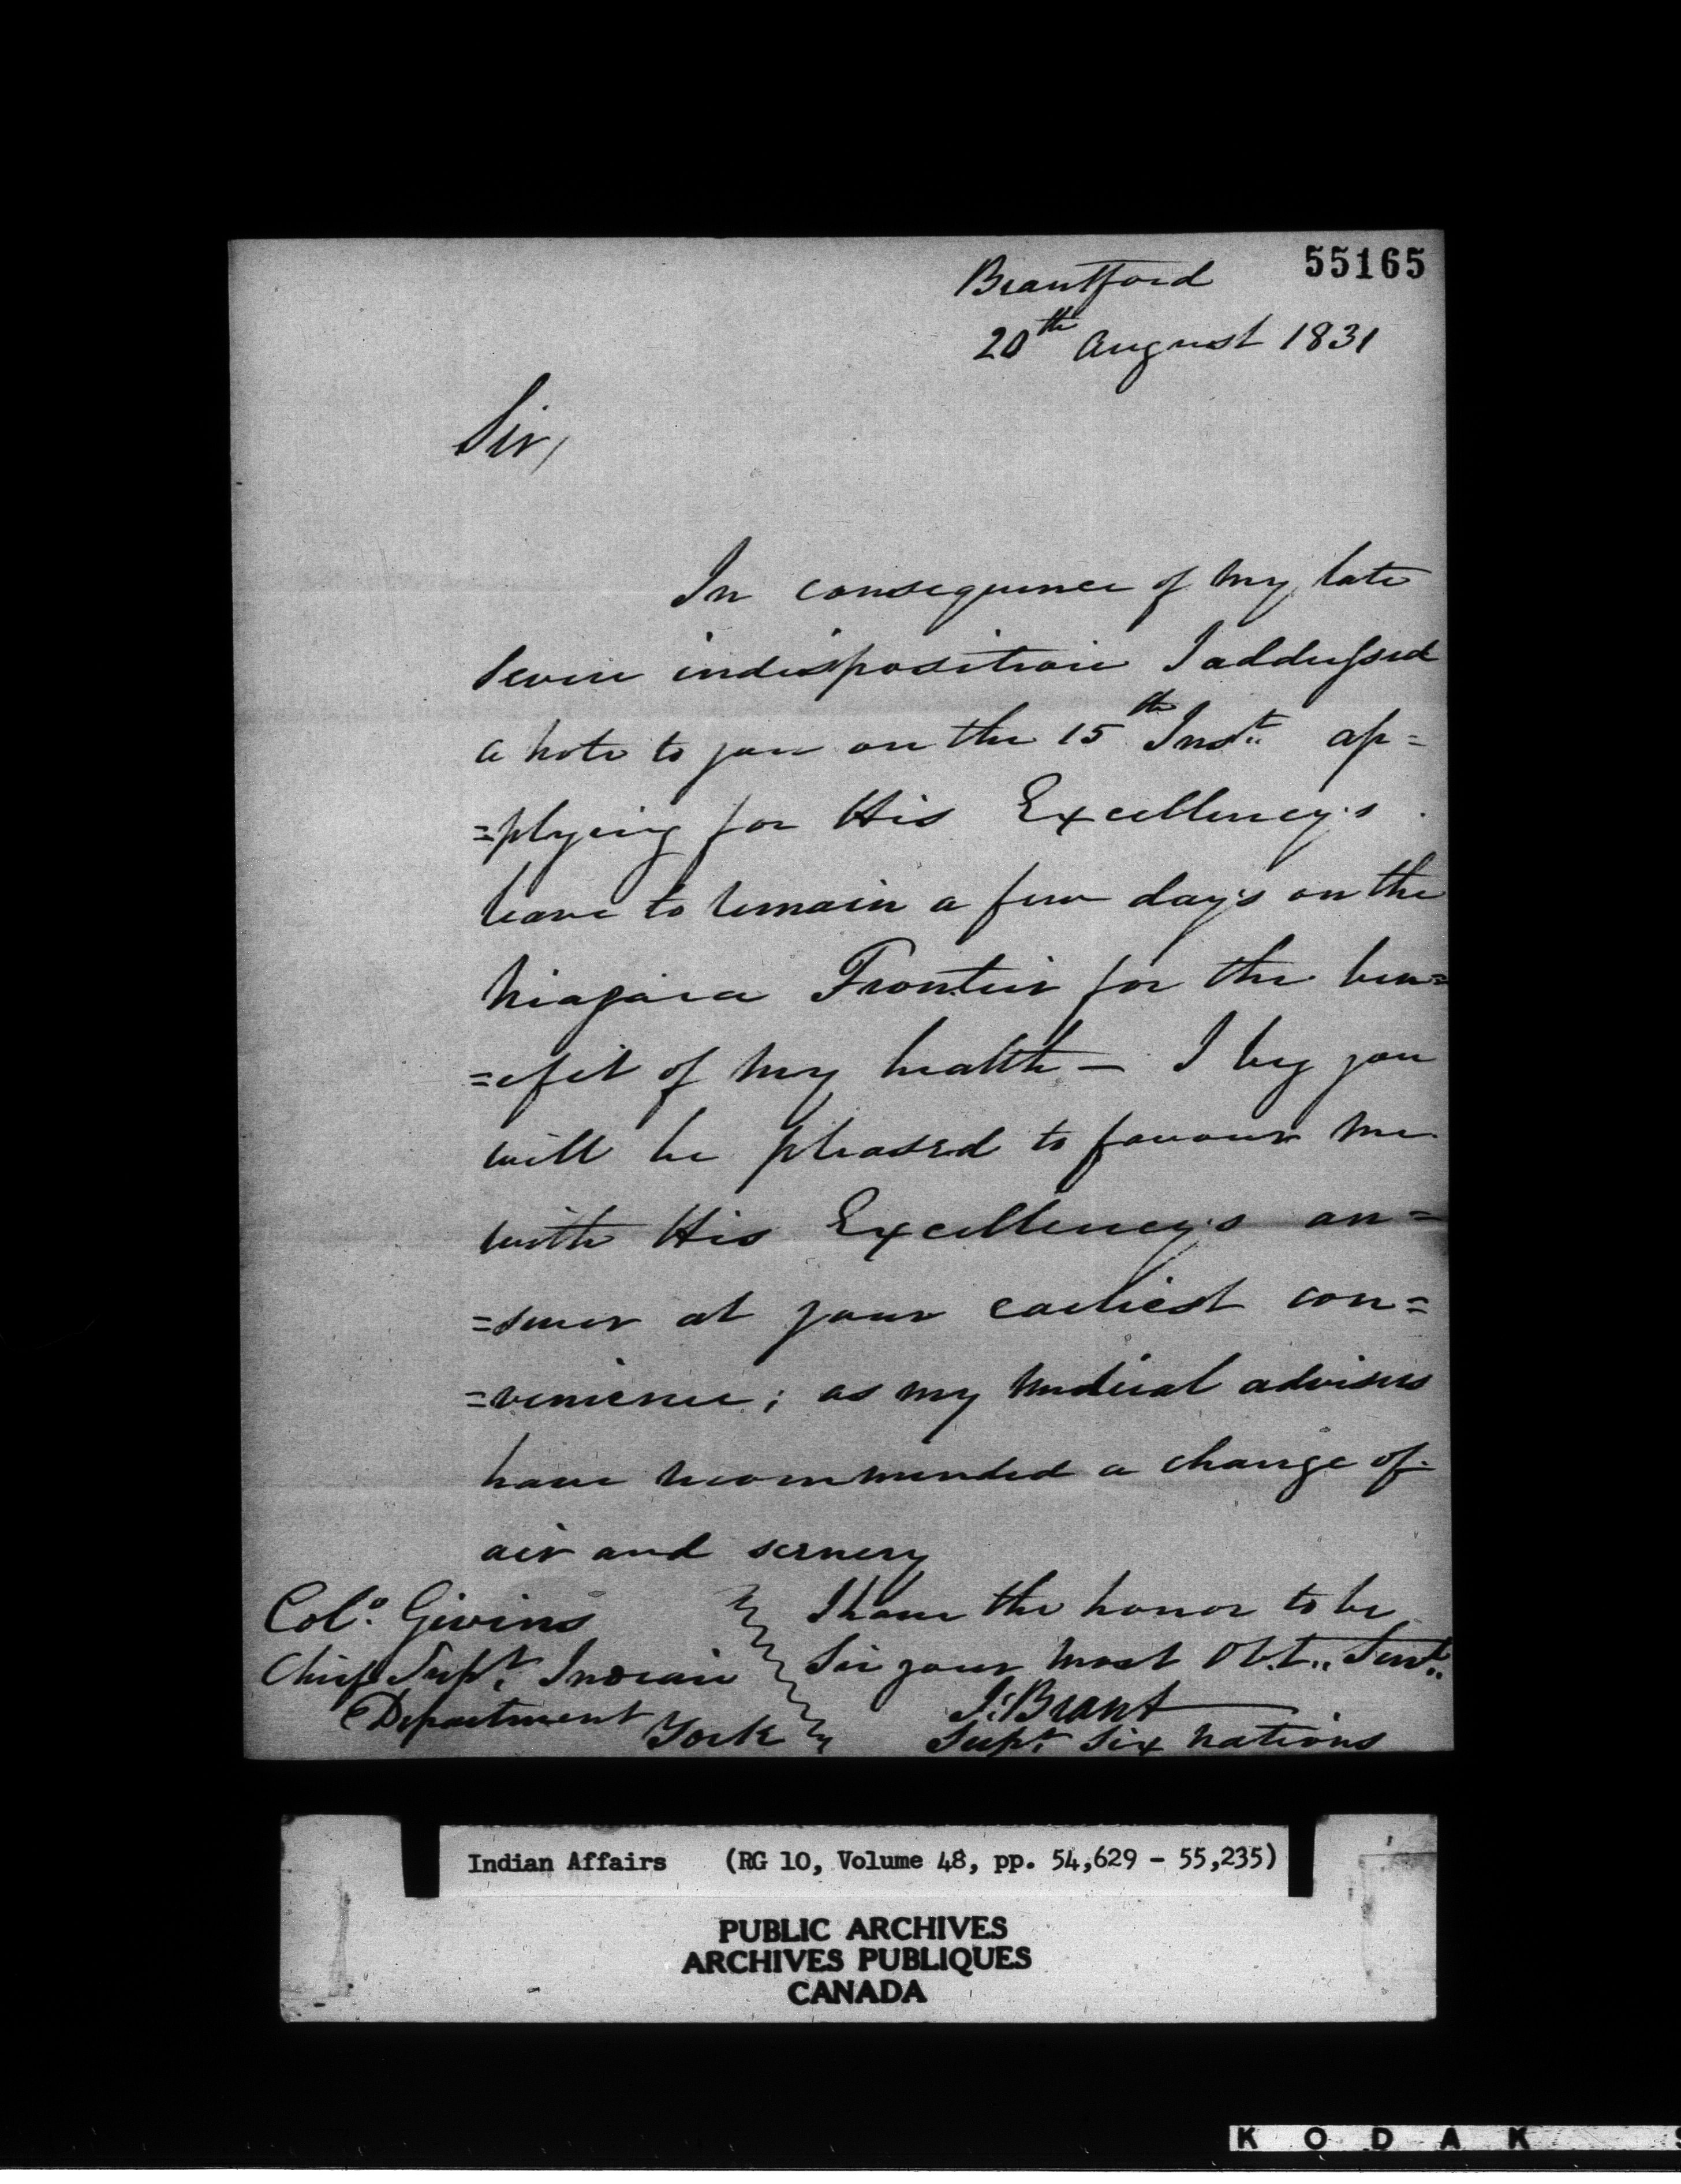 55165
Brantford
20th August 1831
Sir,
In consequence of my late
severe indisposition I addressed
a note to you on the 15th Inst. ap=
=plying for His Excellency's
leave to remain a few days on the
Niagara Frontier for the ben=
=efit of my health — I beg you
will be pleased to favour me
with His Excellency's an=
=swer at your earliest con=
=venience; as my medical advisers
have recommended a change of
air and scenery
I have the honor to be
Sir your most Obt. Servt.
J. Brant
Supt. Six Nations
Colo. Givins
Chief Supt. Indian
Department
York
Indian Affairs (RG 10, Volume 48, pp. 54,629 - 55,235)
PUBLIC ARCHIVES
ARCHIVES PUBLIQUES
CANADA
KODAK S